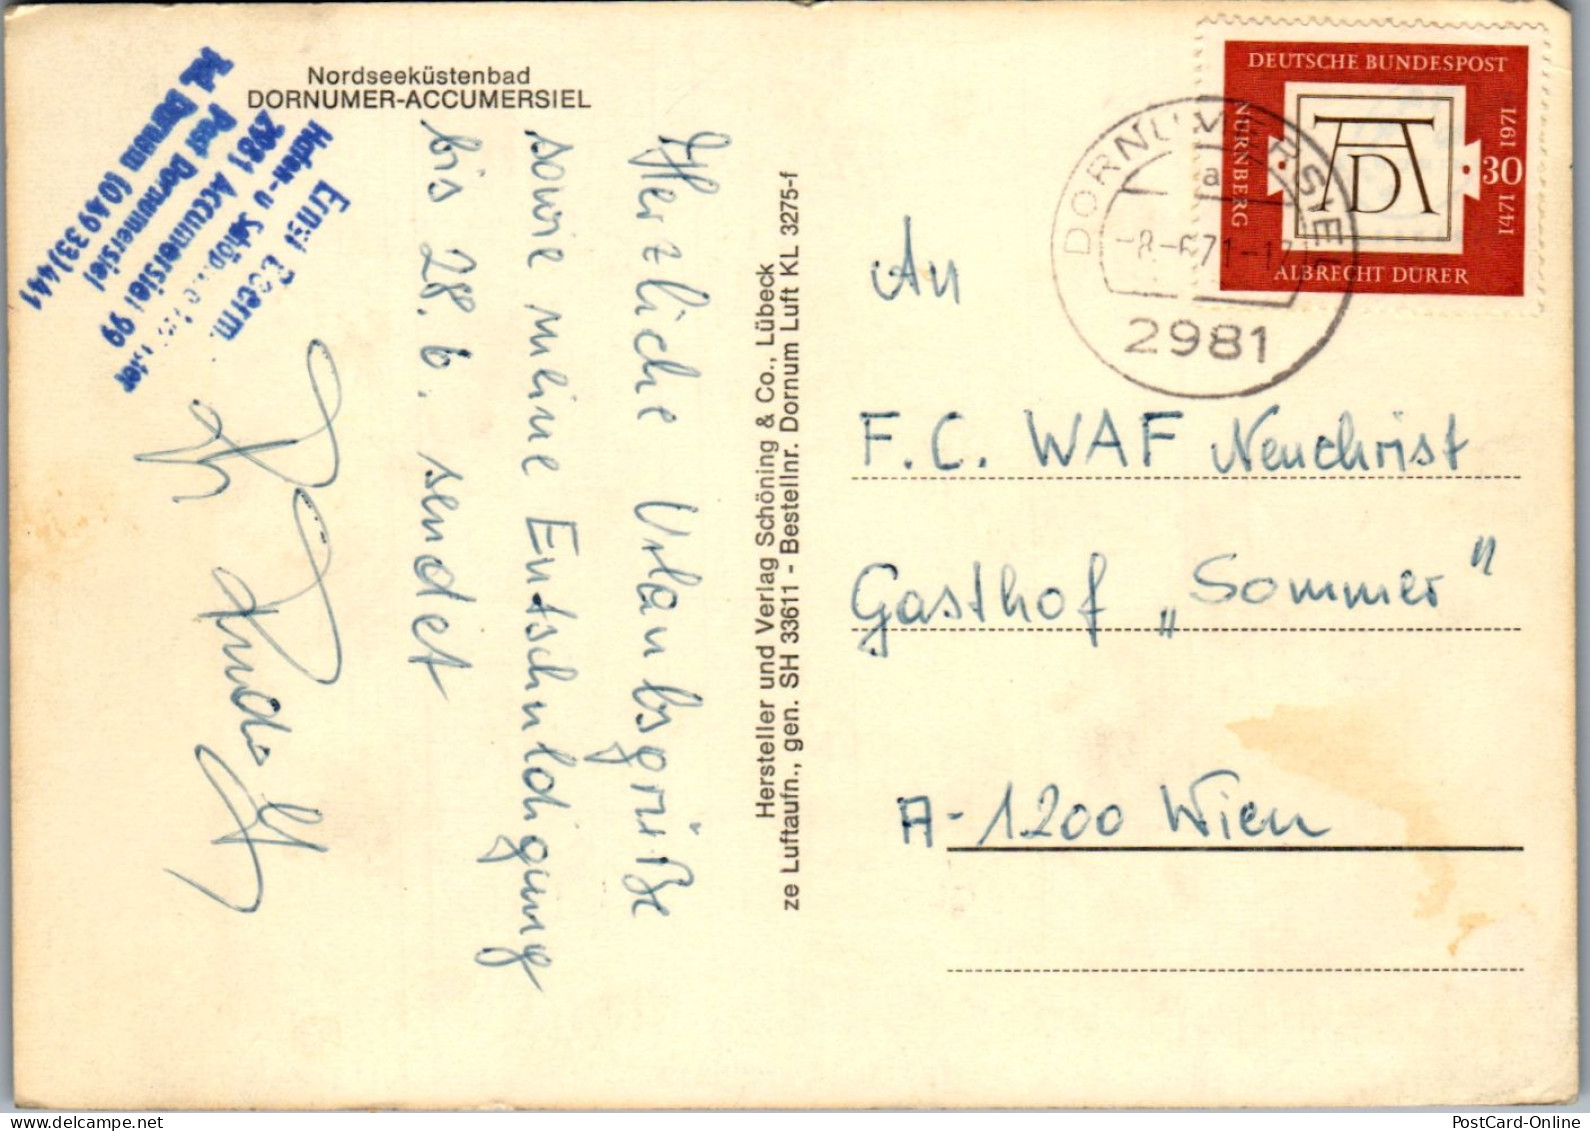 Nordseeküstenbad
DORNUMER-ACCUMERSIEL
Ernst
Hafen- u.
2981 Accumersiel 99
Post Dornumersiel
Tel. Dornum (0 49 33) 441
Herzliche Urlaubsgrüße
sowie meine Entschuldigung
bis 28. 6. sendet
Rudolf
Hersteller und Verlag Schöning & Co., Lübeck
ze Luftaufn., gen. SH 33611 - Bestellnr. Dornum Luft KL 3275-f
DEUTSCHE BUNDESPOST
NÜRNBERG
1471 1971
30
AD
ALBRECHT DÜRER
DORNUMERSIEL
a
-8-6.71-17
2981
An
F.C. WAF Neuchrist
Gasthof „Sommer"
A-1200 Wien
PostCard-Online
PostCard-Online.com